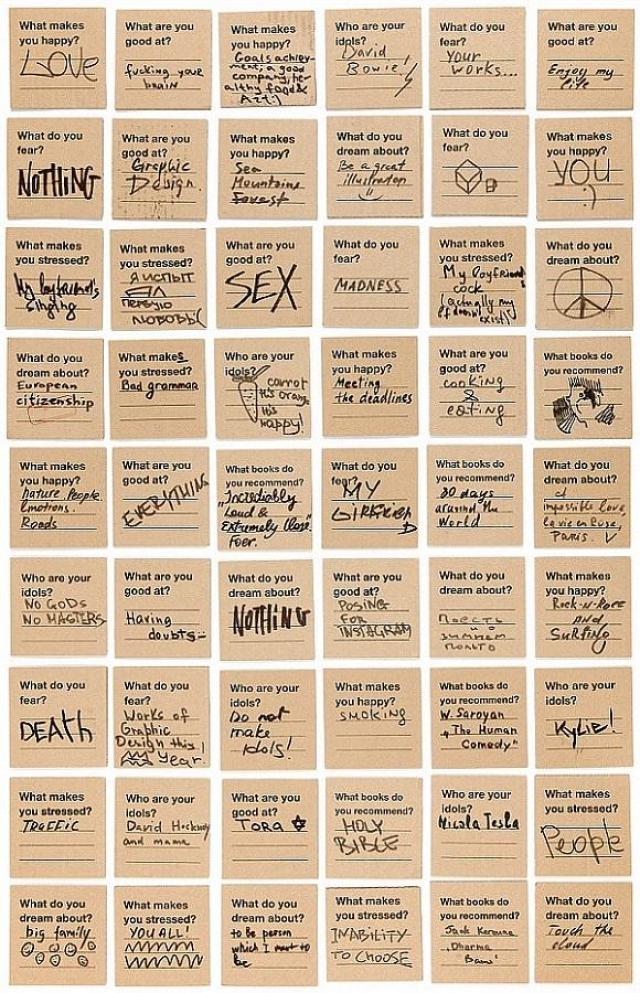 What makes
you happy?
LOVE
What are you
good at?
fucking your
brain
What makes
you happy?
Goals achiev-
ment; a good
company; he-
althy food &
Art:)
Who are your
idols?
David
Bowie!
What do you
fear?
Your
works...
What are you
good at?
Enjoy my
life
What do you
fear?
NOTHING
What are you
good at?
Graphic
Design.
What makes
you happy?
Sea
Mountains
Forest
What do you
dream about?
Be a great
illustrator
What do you
fear?
What makes
you happy?
YOU
:)
What makes
you stressed?
My boyfriend's
singing
What makes
you stressed?
Я ИСПЫТ
первую
любовь(
What are you
good at?
SEX
What do you
fear?
MADNESS
What makes
you stressed?
My boyfriend
cock
(actually my
bf doesn't
exist)
What do you
dream about?
What do you
dream about?
European
citizenship
What makes
you stressed?
Bad grammar
Who are your
idols?
carrot
It's orange
It's
happy!
What makes
you happy?
Meeting
the deadlines
What are you
good at?
cooking
&
eating
What books do
you recommend?
What makes
you happy?
nature. People.
Emotions.
Roads
What are you
good at?
EVERYTHING
What books do
you recommend?
"Incrediably
Loud &
Extremely Close"
Foer.
What do you
fear?
MY
GIRLFRIEND
What books do
you recommend?
80 days
around the
World
What do you
dream about?
impossible love,
la vie en Rose,
Paris.
Who are your
idols?
NO GODS
NO MASTERS
What are you
good at?
Having
doubts
What do you
dream about?
NOTHING
What are you
good at?
POSING
FOR
INSTAGRAM
What do you
dream about?
Поесть
в
зимнем
пальто
What makes
you happy?
Rock-N-Role
AND
SURFING
What do you
fear?
DEATH
What do you
fear?
Works of
Graphic
Design this
year.
Who are your
idols?
Do not
make
idols!
What makes
you happy?
SMOKING
What books do
you recommend?
W. Saroyan
"The Human
Comedy"
Who are your
idols?
Kylie!
What makes
you stressed?
TRAFFIC
Who are your
idols?
David Hockney
and mama
What are you
good at?
TORA ✡
What books do
you recommend?
HOLY
BIBLE
Who are your
idols?
Nicola Tesla
What makes
you stressed?
People
What do you
dream about?
big family
What makes
you stressed?
YOU ALL!
What do you
dream about?
to be person
which I want to
be
What makes
you stressed?
INABILITY
TO CHOOSE
What books do
you recommend?
Jack Kerouac
"Dharma
Bums"
What do you
dream about?
Touch the
cloud